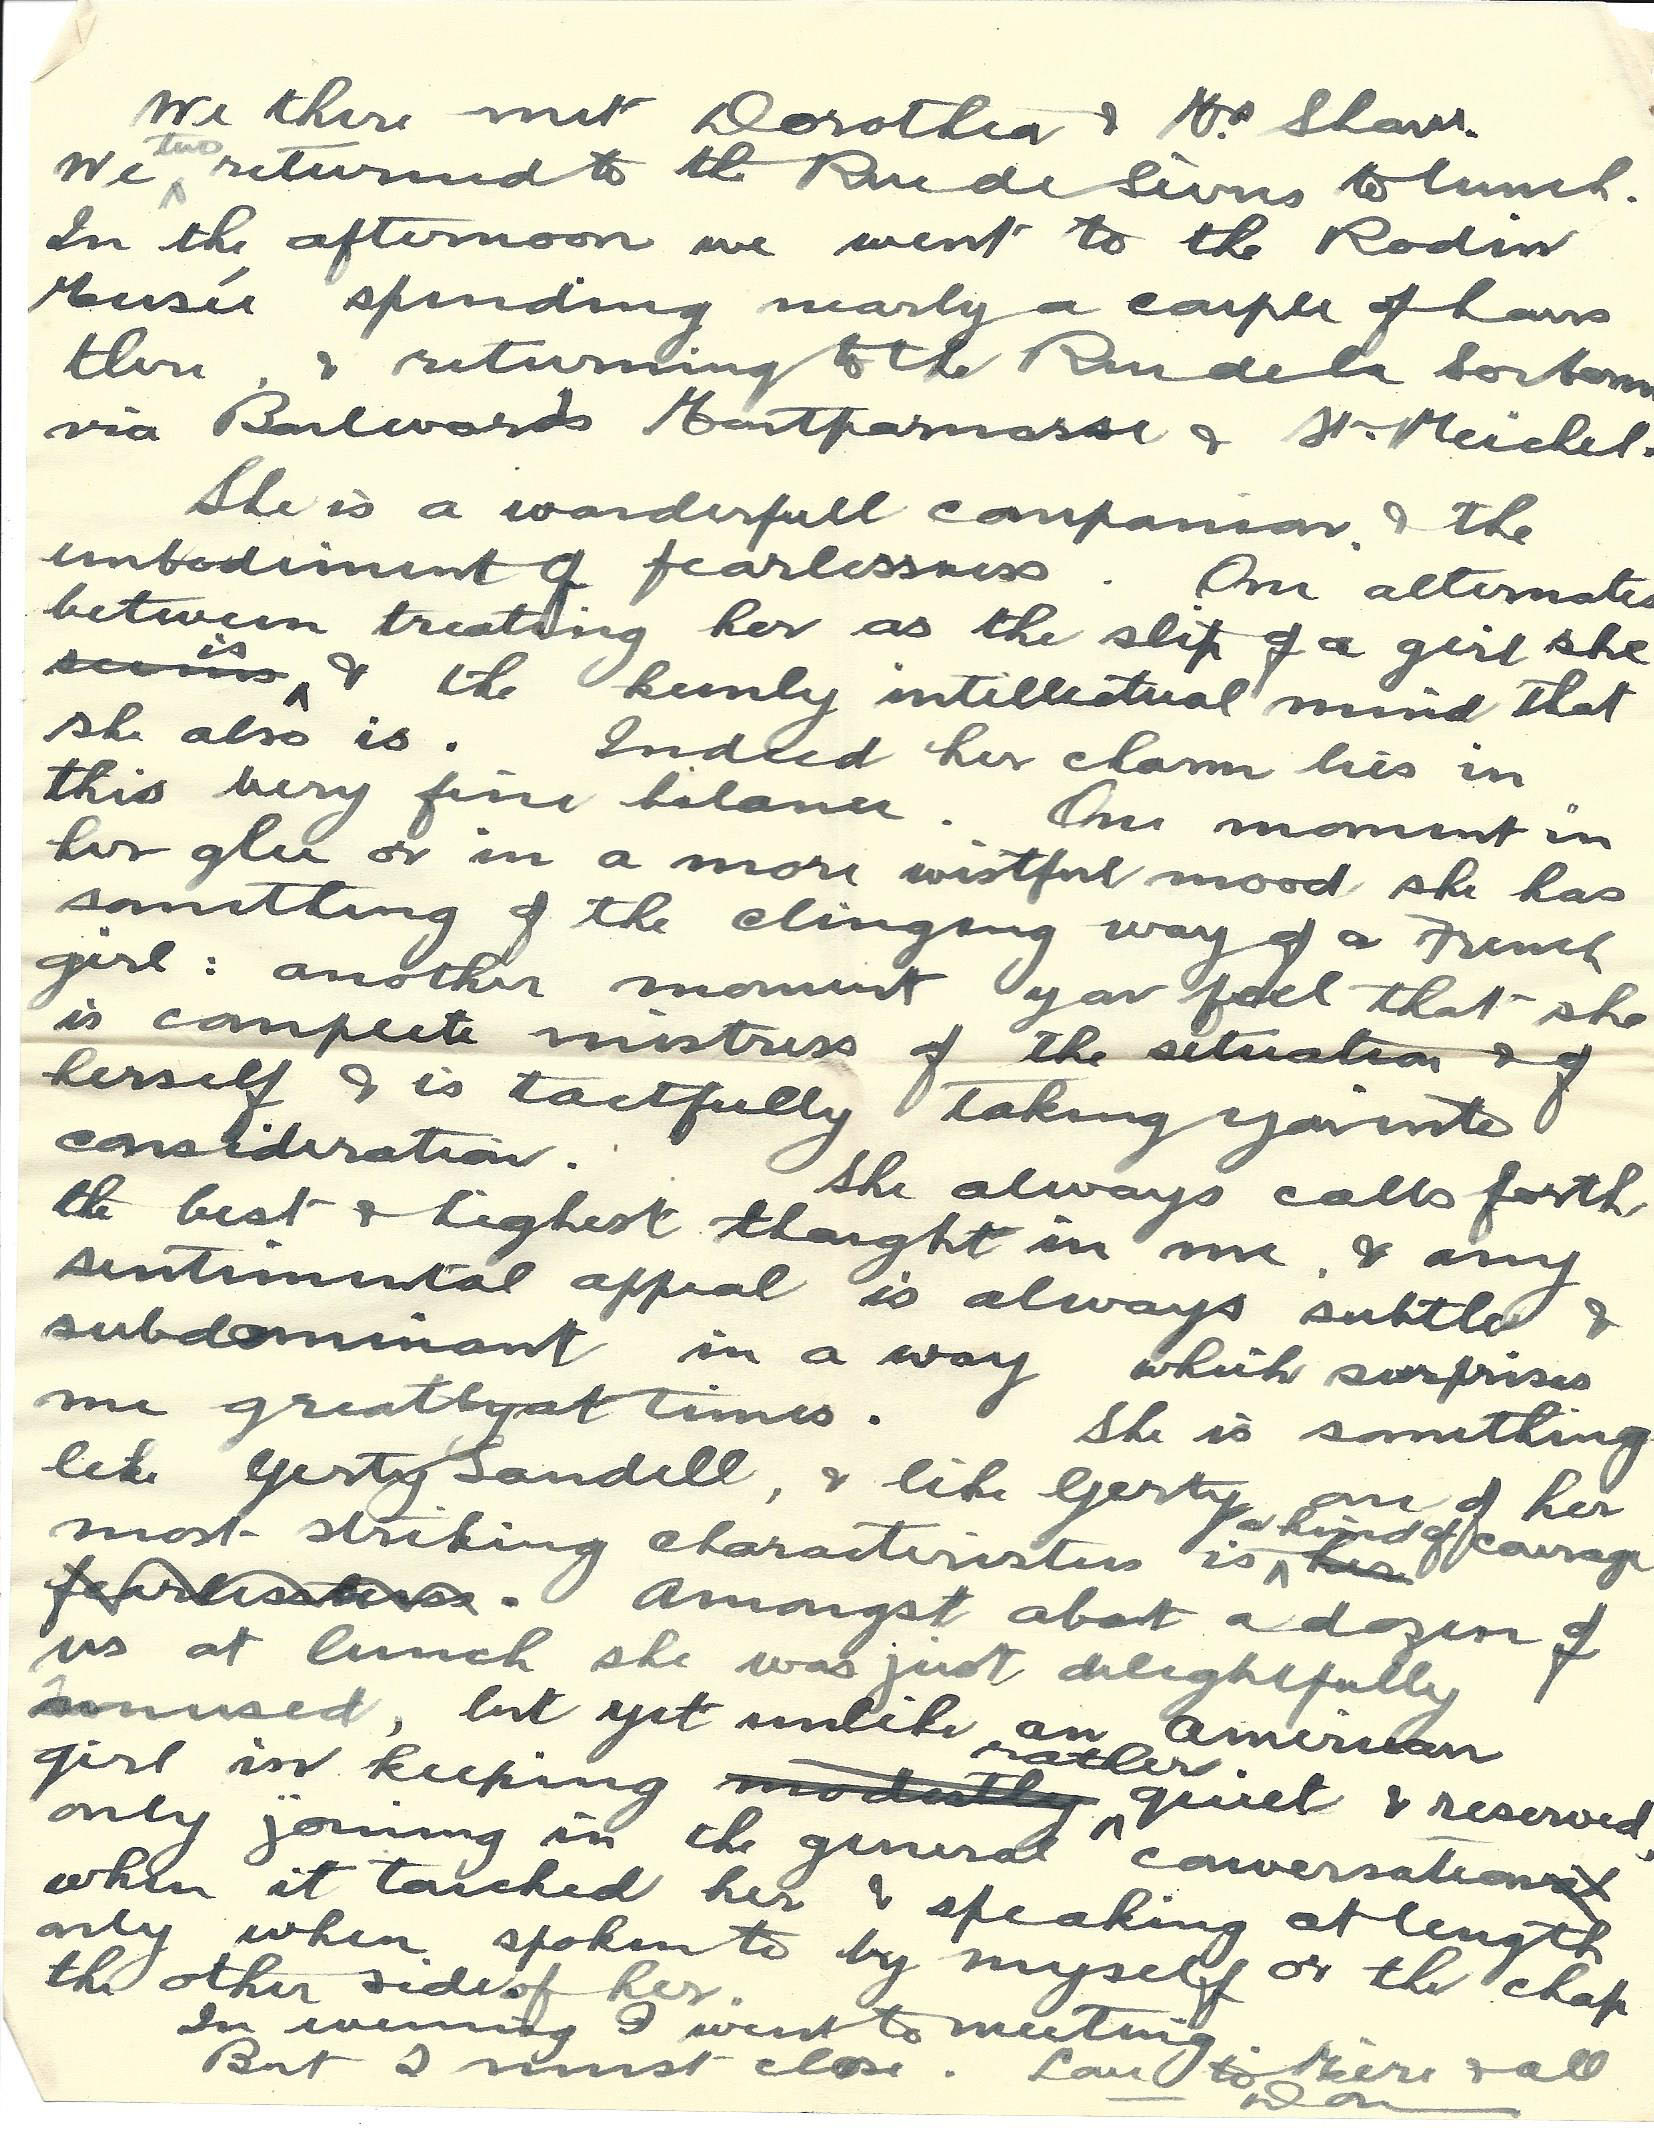 We there met Dorothea & Shaw.
We two returned to the Rue de Sèvres to lunch.
In the afternoon we went to the Rodin
Musée spending nearly a couple of hours
there, & returning to the Rue de la Sorbonne
via Boulevards Montparnasse & St. Meichel.
She is a wonderfull companion, & the
embodiment of fearlessness. One alternates
between treating her as the slip of a girl she
seems is & the keenly intellectual mind that
she also is. Indeed her charm lies in
this very fine balance. One moment in
her glee or in a more wistful mood she has
something of the clinging way of a French
girl: another moment you feel that she
is complete mistress of the situation & of
herself & is tactfully taking you into
consideration. She always calls forth
the best & highest thought in me, & any
sentimental appeal is always subtle &
subdominant in a way which surprises
me greatly at times. She is something
like Gerty Sandell, & like Gerty one of her
most striking characteristics is her a kind of courage
fearlessness. Amongst about a dozen of
us at lunch she was just delightfully
amused, but yet unlike an American
girl in keeping modestly rather quiet & reserved,
only joining in the general conversation
when it touched her & speaking at length
only when spoken to by myself or the chap
the other side of her.
In evening I went to meeting.
But I must close. Love to Mère & all
Don